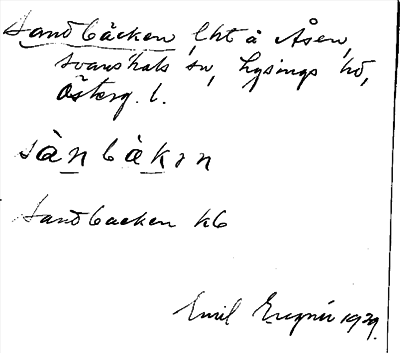 Sandbäcken, lht å Åsen,
Svanshals sn, Lysings hd,
Österg. l.
sànbäkən
Sandbacken kb
Emil 1929.